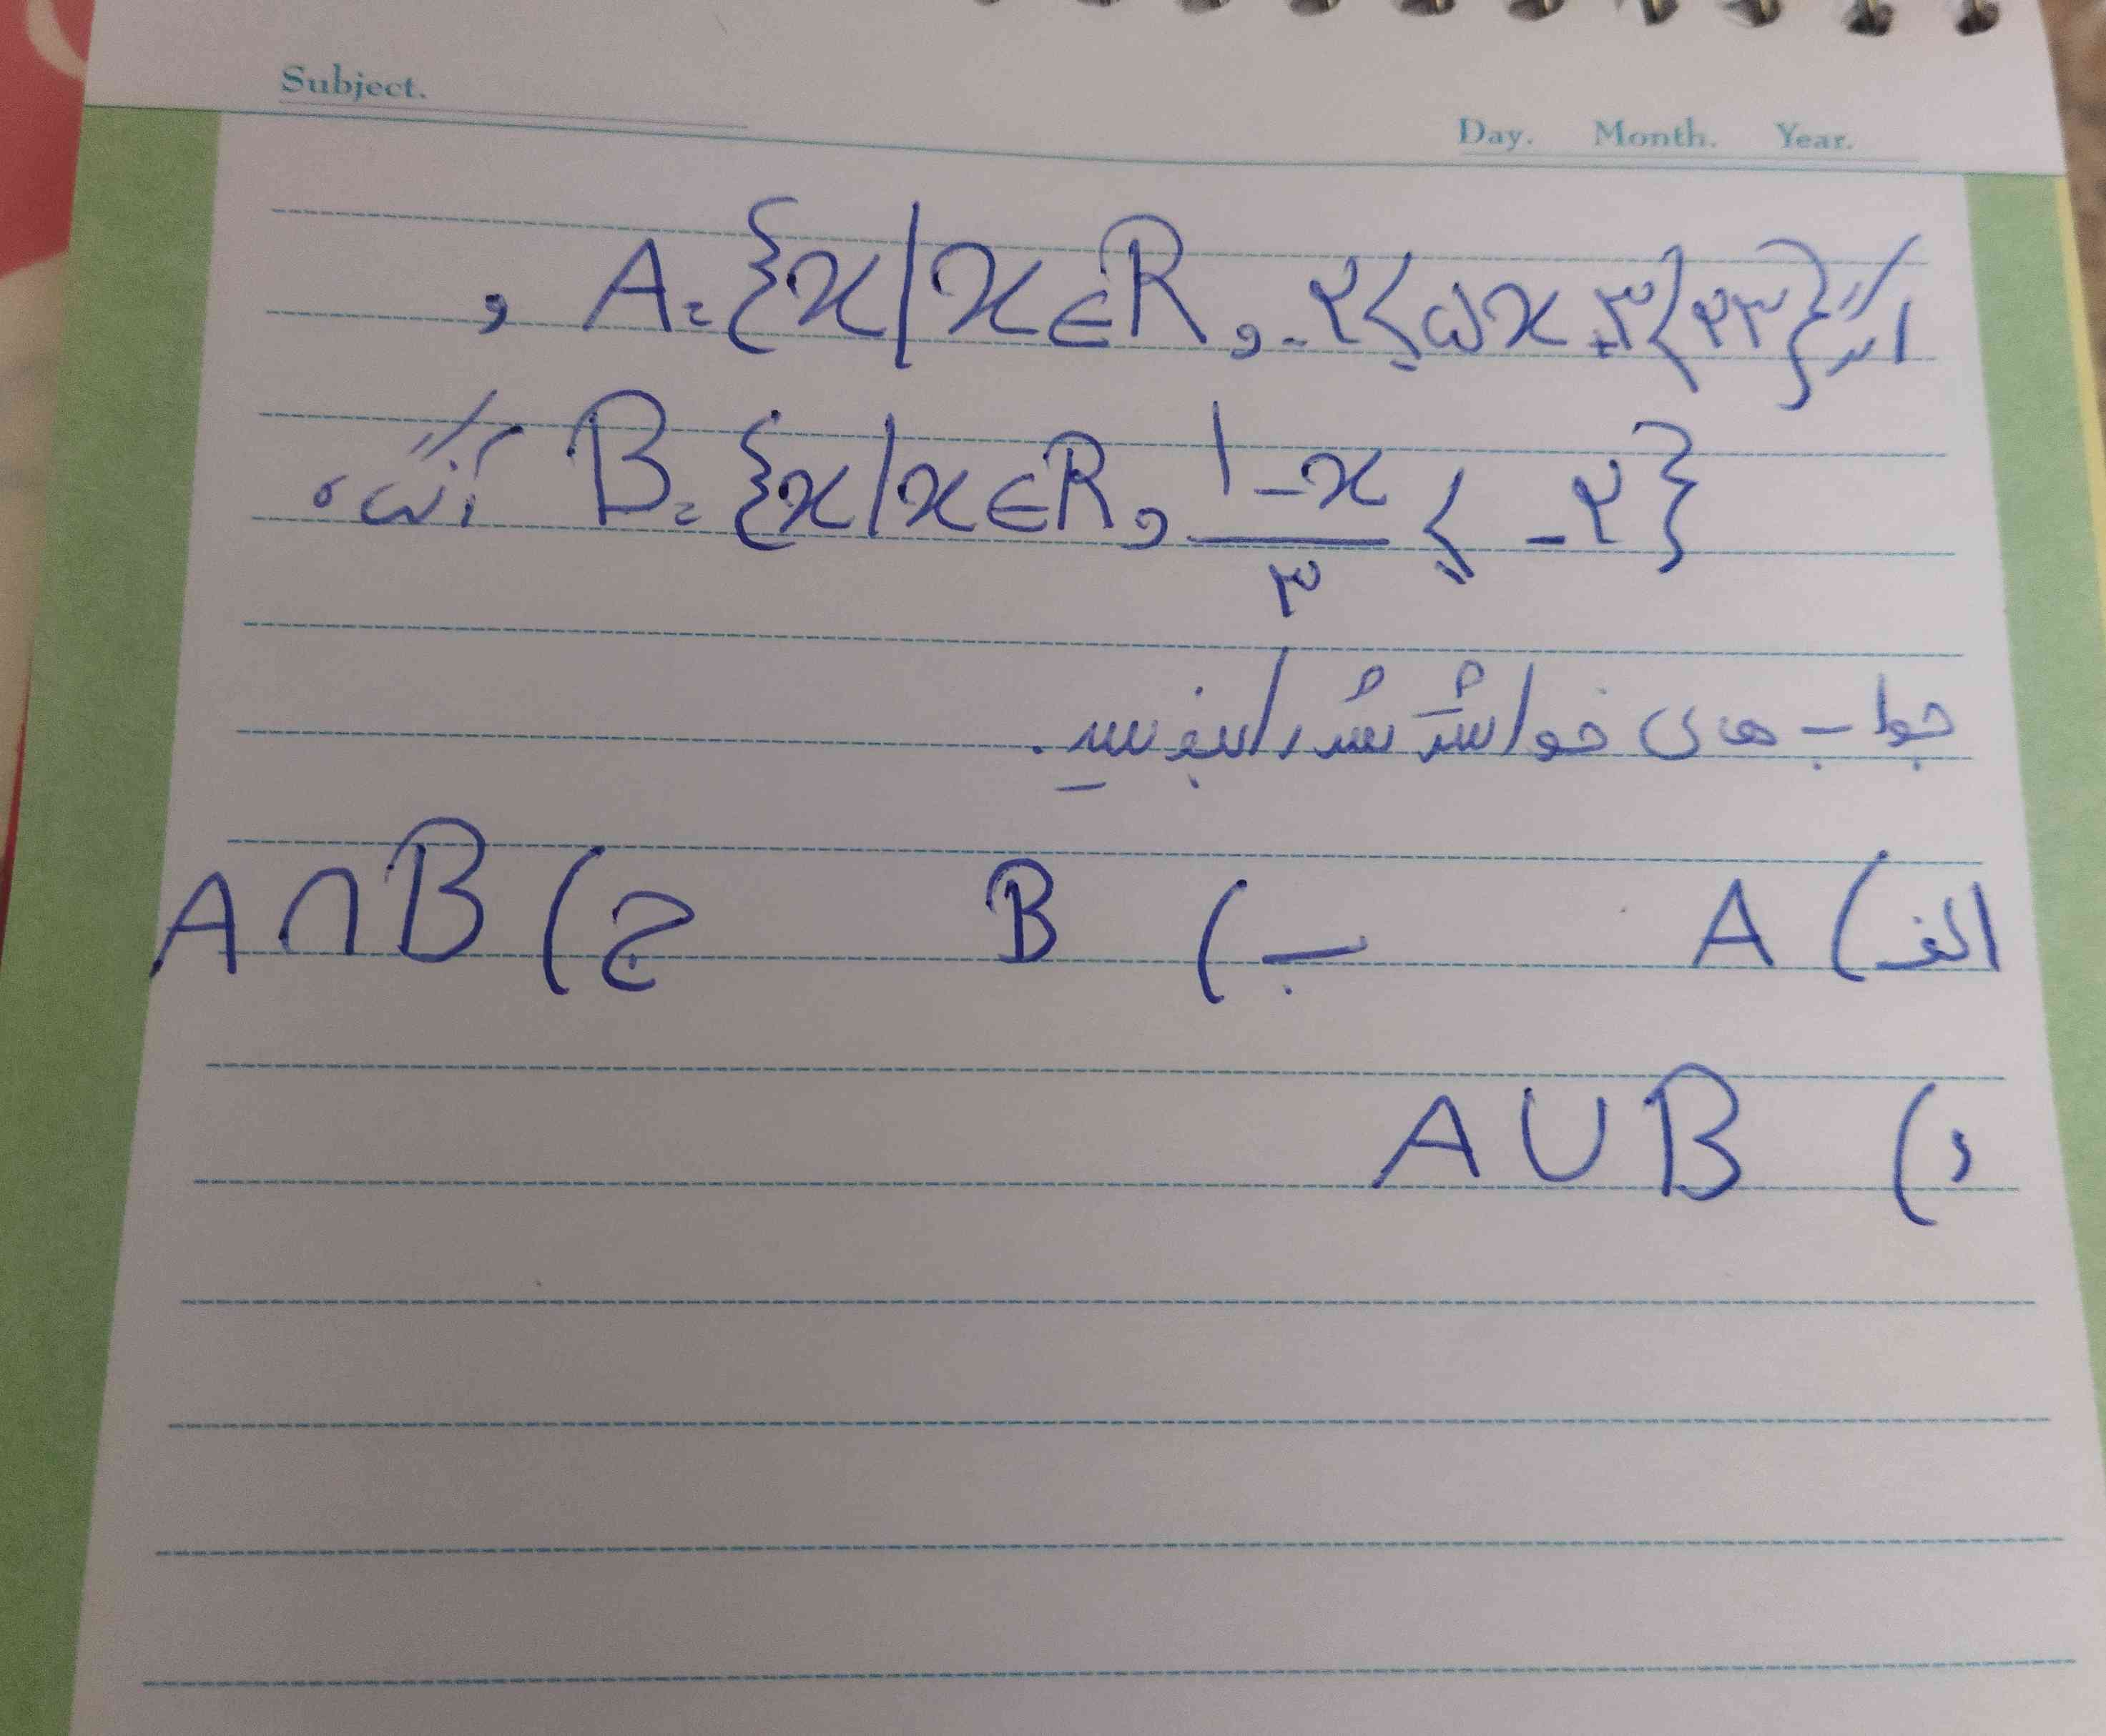 Subject.
Day. Month. Year.
اگر A = {x | x ∈ R , -۲ ≤ ۵x + ۳ < ۲۳} ,
B = {x | x ∈ R , (۱ - x)/۳ ≤ -۲} آنگاه
جواب های خواسته شده را بنویسید.
الف) A ب) B ج) A ∩ B
د) A ∪ B